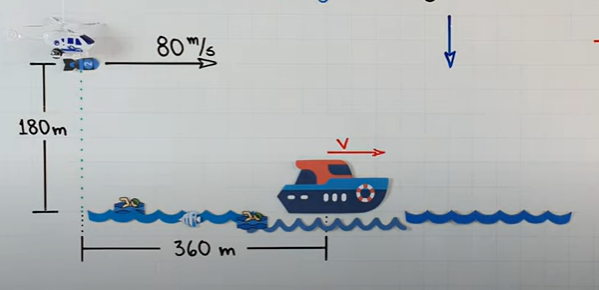 80 m/s
180 m
V
360 m